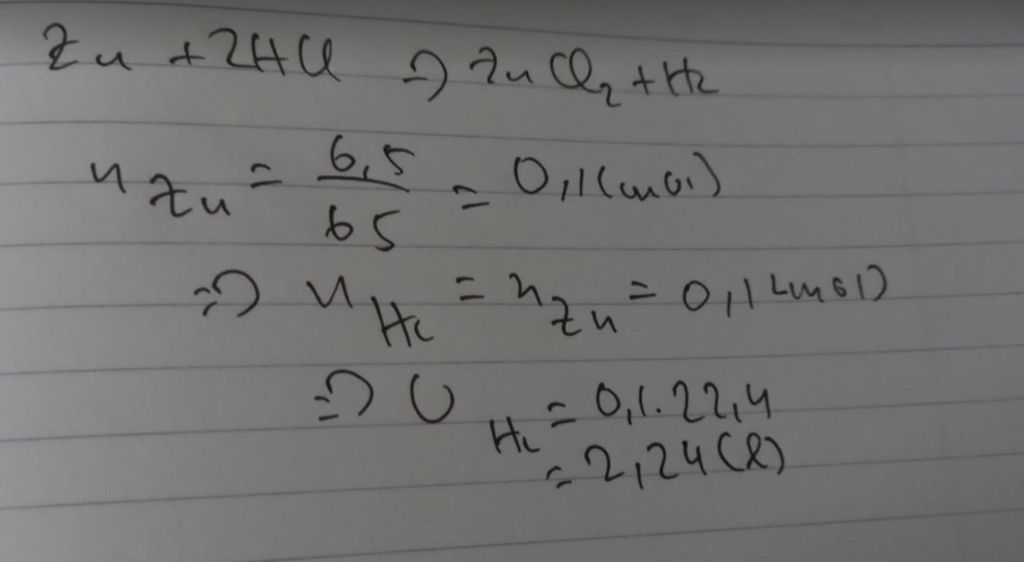 Zn + 2HCl => ZnCl2 + H2
nZn = 6,5/65 = 0,1(mol)
=> nH2 = nZn = 0,1(mol)
=> VH2 = 0,1.22,4
= 2,24(l)